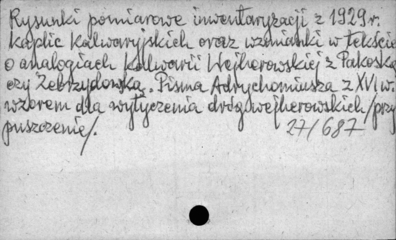 Rysunki pomiarowe inwentaryzacji z 1929 r.
kaplic kalwaryjskich oraz wzmianki w tekście
o analogiach kalwarii Wejherowskiej z Pakoską
czy Zebrzydowską. Pisma Adrychomiusza z XVI w.
wzorem dla wytyczenia dróg wejherowskich /przy
puszczenie/.
27/687